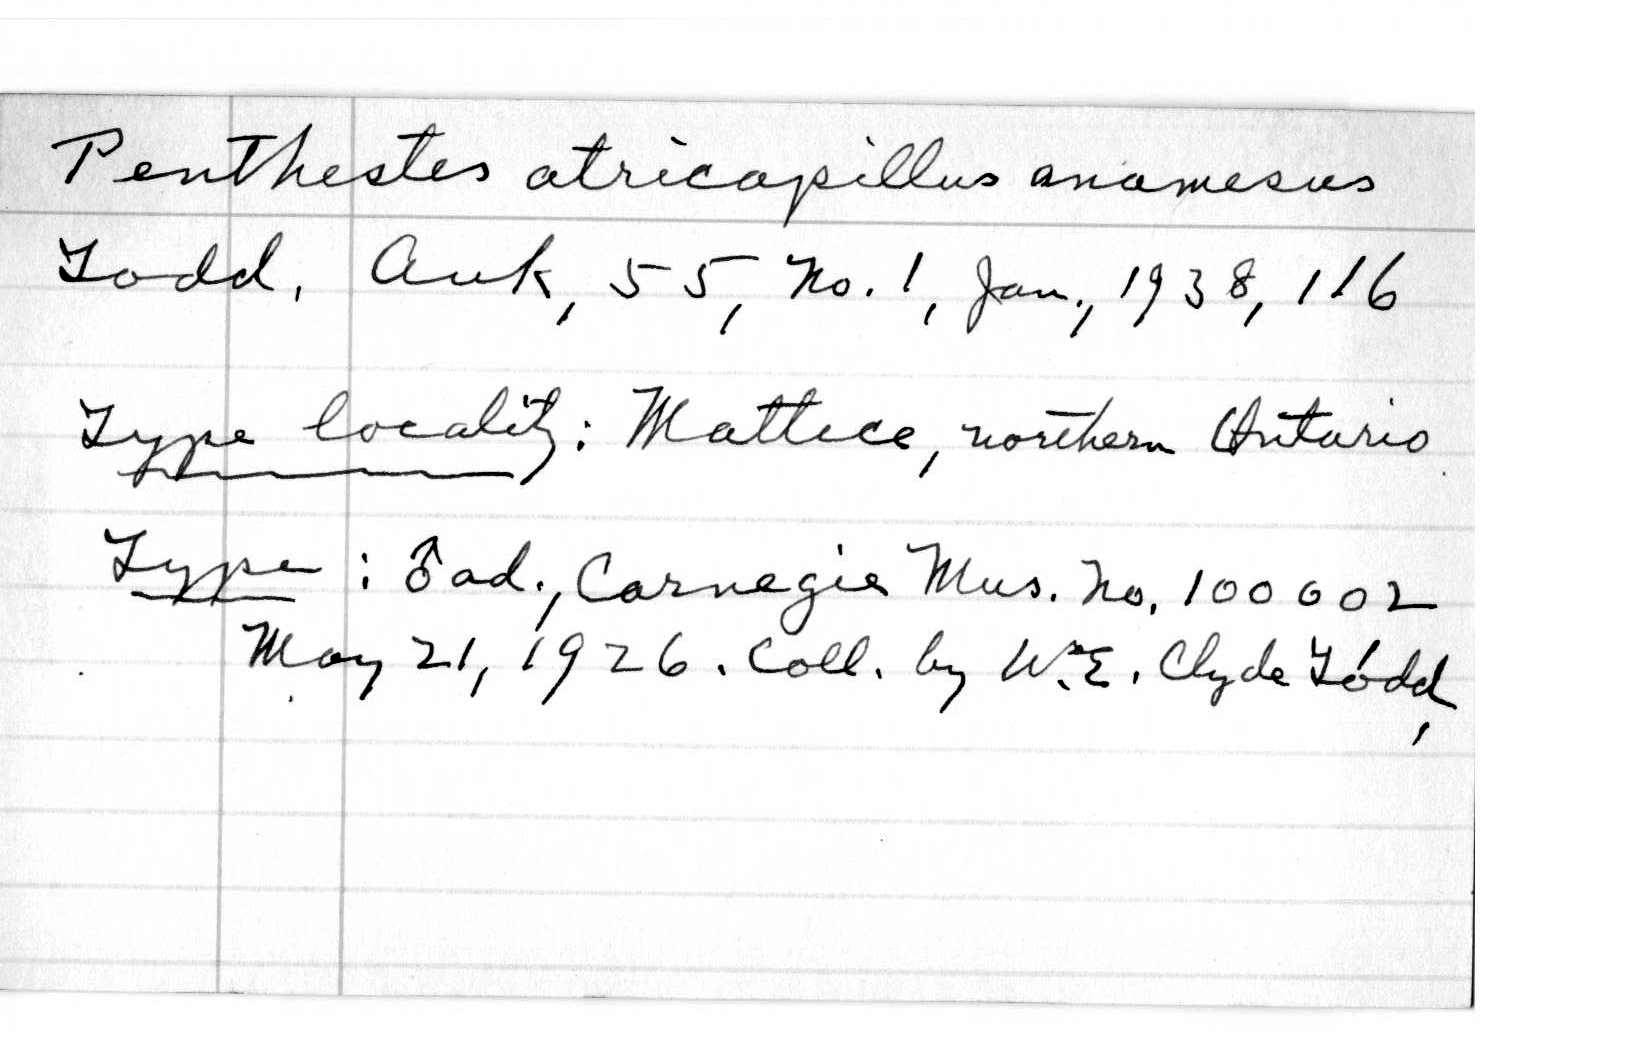 Penthestes atricapillus anamesus
Todd, Auk, 55, No. 1, Jan., 1938, 116
Type locality: Mattice, northern Ontario.
Type: ♂ ad., Carnegie Mus. No. 100002
May 21, 1926. Coll. by Wm. E. Clyde Todd,